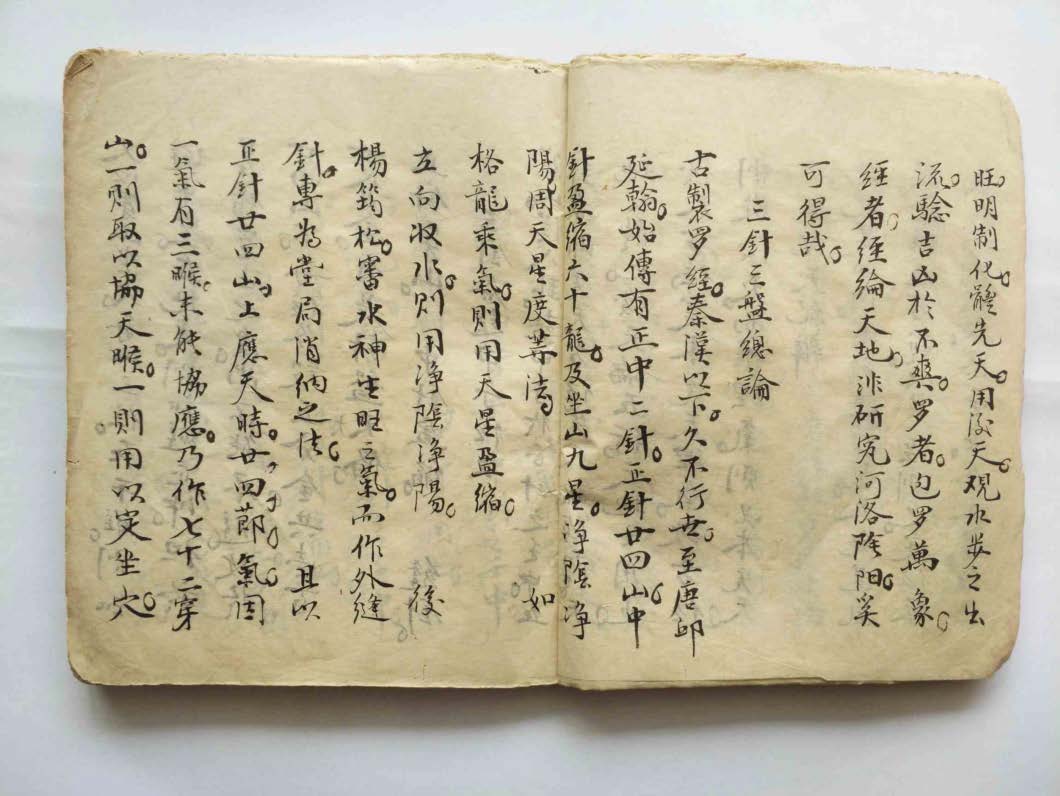 旺。明制化。體先天。用後天。观水步之出
流。騐吉凶於不爽。罗者。包罗萬象。
經者。經綸天地。非研究河洛陰阳。奚
可得哉。
三針三盤總論
古製罗經。秦漢以下。久不行世。至唐邱
延翰。始傳有正中二針。正針廿四山。中
針盈縮六十龍。及坐山九星。净陰净
陽。周天星度等法。如
格龍乘氣。則用天星盈縮。
立向收水。則用净陰净陽。後
楊筠松。審水神生旺之氣。而作外縫
針。專為堂局消納之法。且以
正針廿四山。上應天時。廿四節氣。因
一氣有三睺。未能協應。乃作七十二穿
山。一則取以協天睺。一則用以定坐穴。